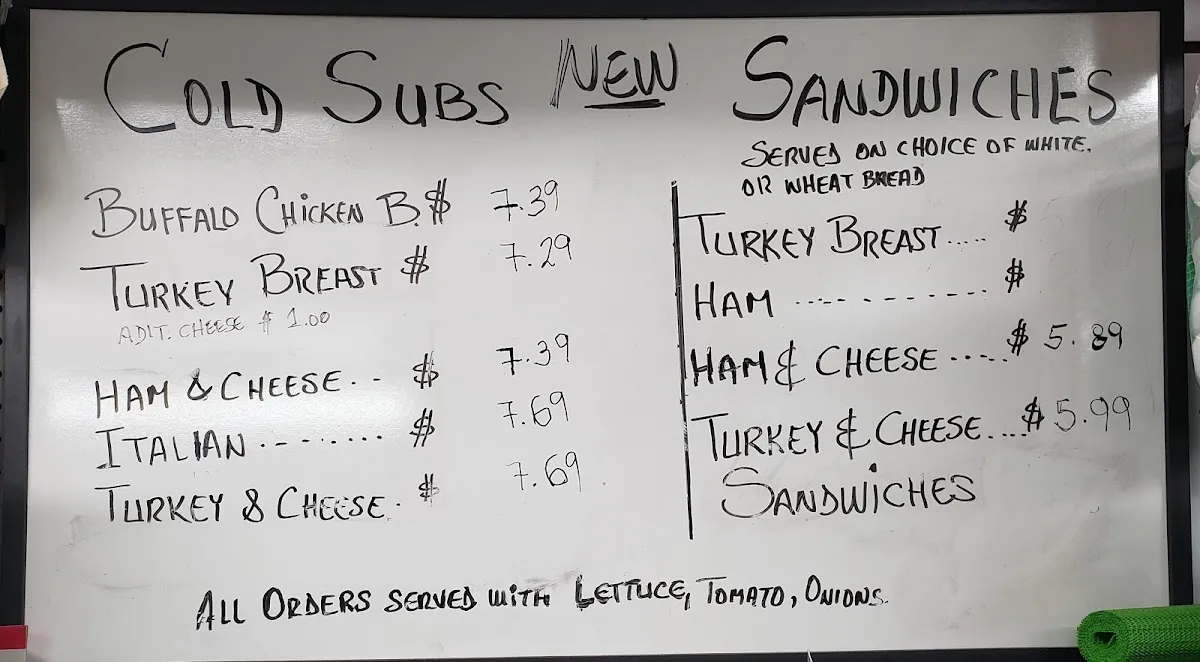 COLD SUBS NEW SANDWICHES
SERVED ON CHOICE OF WHITE.
OR WHEAT BREAD
BUFFALO CHICKEN B. $ 7.39
TURKEY BREAST $ 7.29
ADIT. CHEESE $ 1.00
HAM & CHEESE... $ 7.39
ITALIAN ......... $ 7.69
TURKEY & CHEESE. $ 7.69
TURKEY BREAST..... $
HAM .............. $
HAM & CHEESE ..... $ 5.89
TURKEY & CHEESE.... $ 5.99
SANDWICHES
ALL ORDERS SERVED WITH LETTUCE, TOMATO, ONIONS.